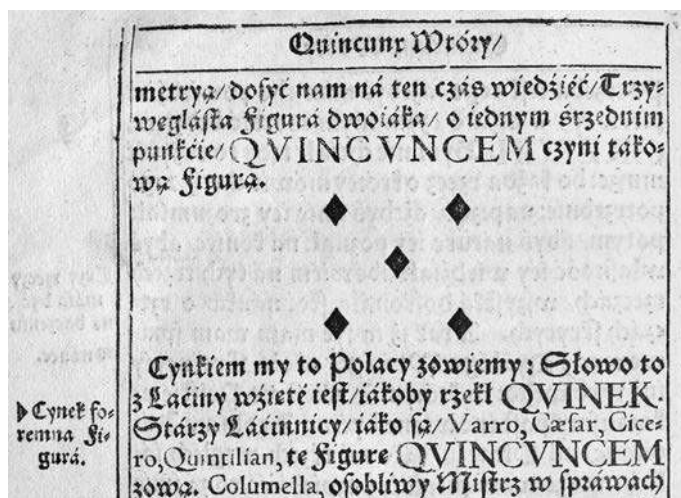 Quincunx Wtóry/
metryą/ dosyć nam ná ten czás wiedźiéć/ Trzy⸗
węgláſta Figurá dwoiáka/ o iednym śrzednim
punkćie/ QVINCVNCEM czyni táko⸗
wą Figurą.
Cynkiem my to Polacy zowiemy: Słowo to
z Łáćiny wźięté ieſt/ iákoby rzekł QVINEK.
Stárzy Łáćinnicy/ iáko są/ Varro, Cæſar, Cice⸗
ro, Quintilian, te Figure QVINCVNCEM
zową. Columella, oſobliwy Miſtrz w ſpráwách
Cynek fo⸗
remna Fi⸗
gurá.